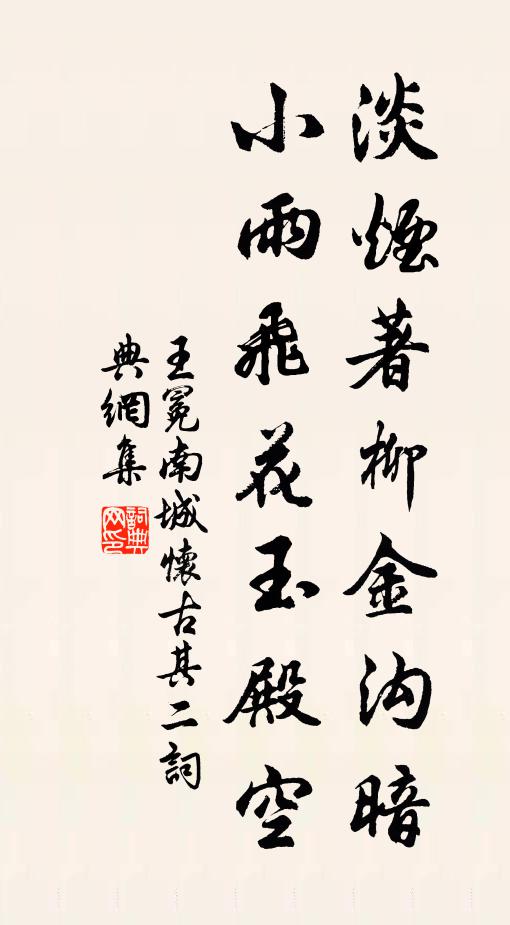 淡煙著柳金沟暗
小雨飛花玉殿空
王冕南城懷古其二詞
典網集
詞典网印